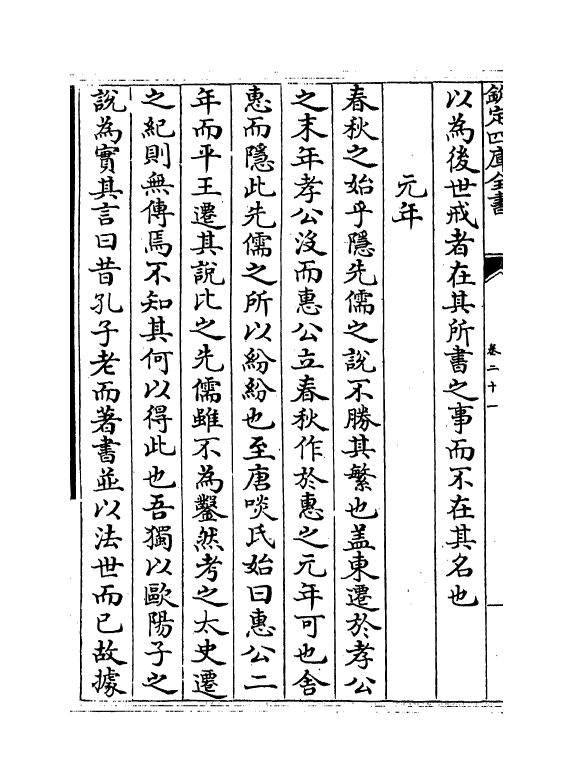 欽定四庫全書
卷二十一
以為後世戒者在其所書之事而不在其名也
元年
春秋之始乎隱先儒之說不勝其繁也盖東遷於孝公
之末年孝公沒而惠公立春秋作於惠之元年可也舍
惠而隱此先儒之所以紛紛也至唐啖氏始曰惠公二
年而平王遷其說比之先儒雖不為鑿然考之太史遷
之紀則無傳焉不知其何以得此也吾獨以歐陽子之
說為實其言曰昔孔子老而著書並以法世而已故據